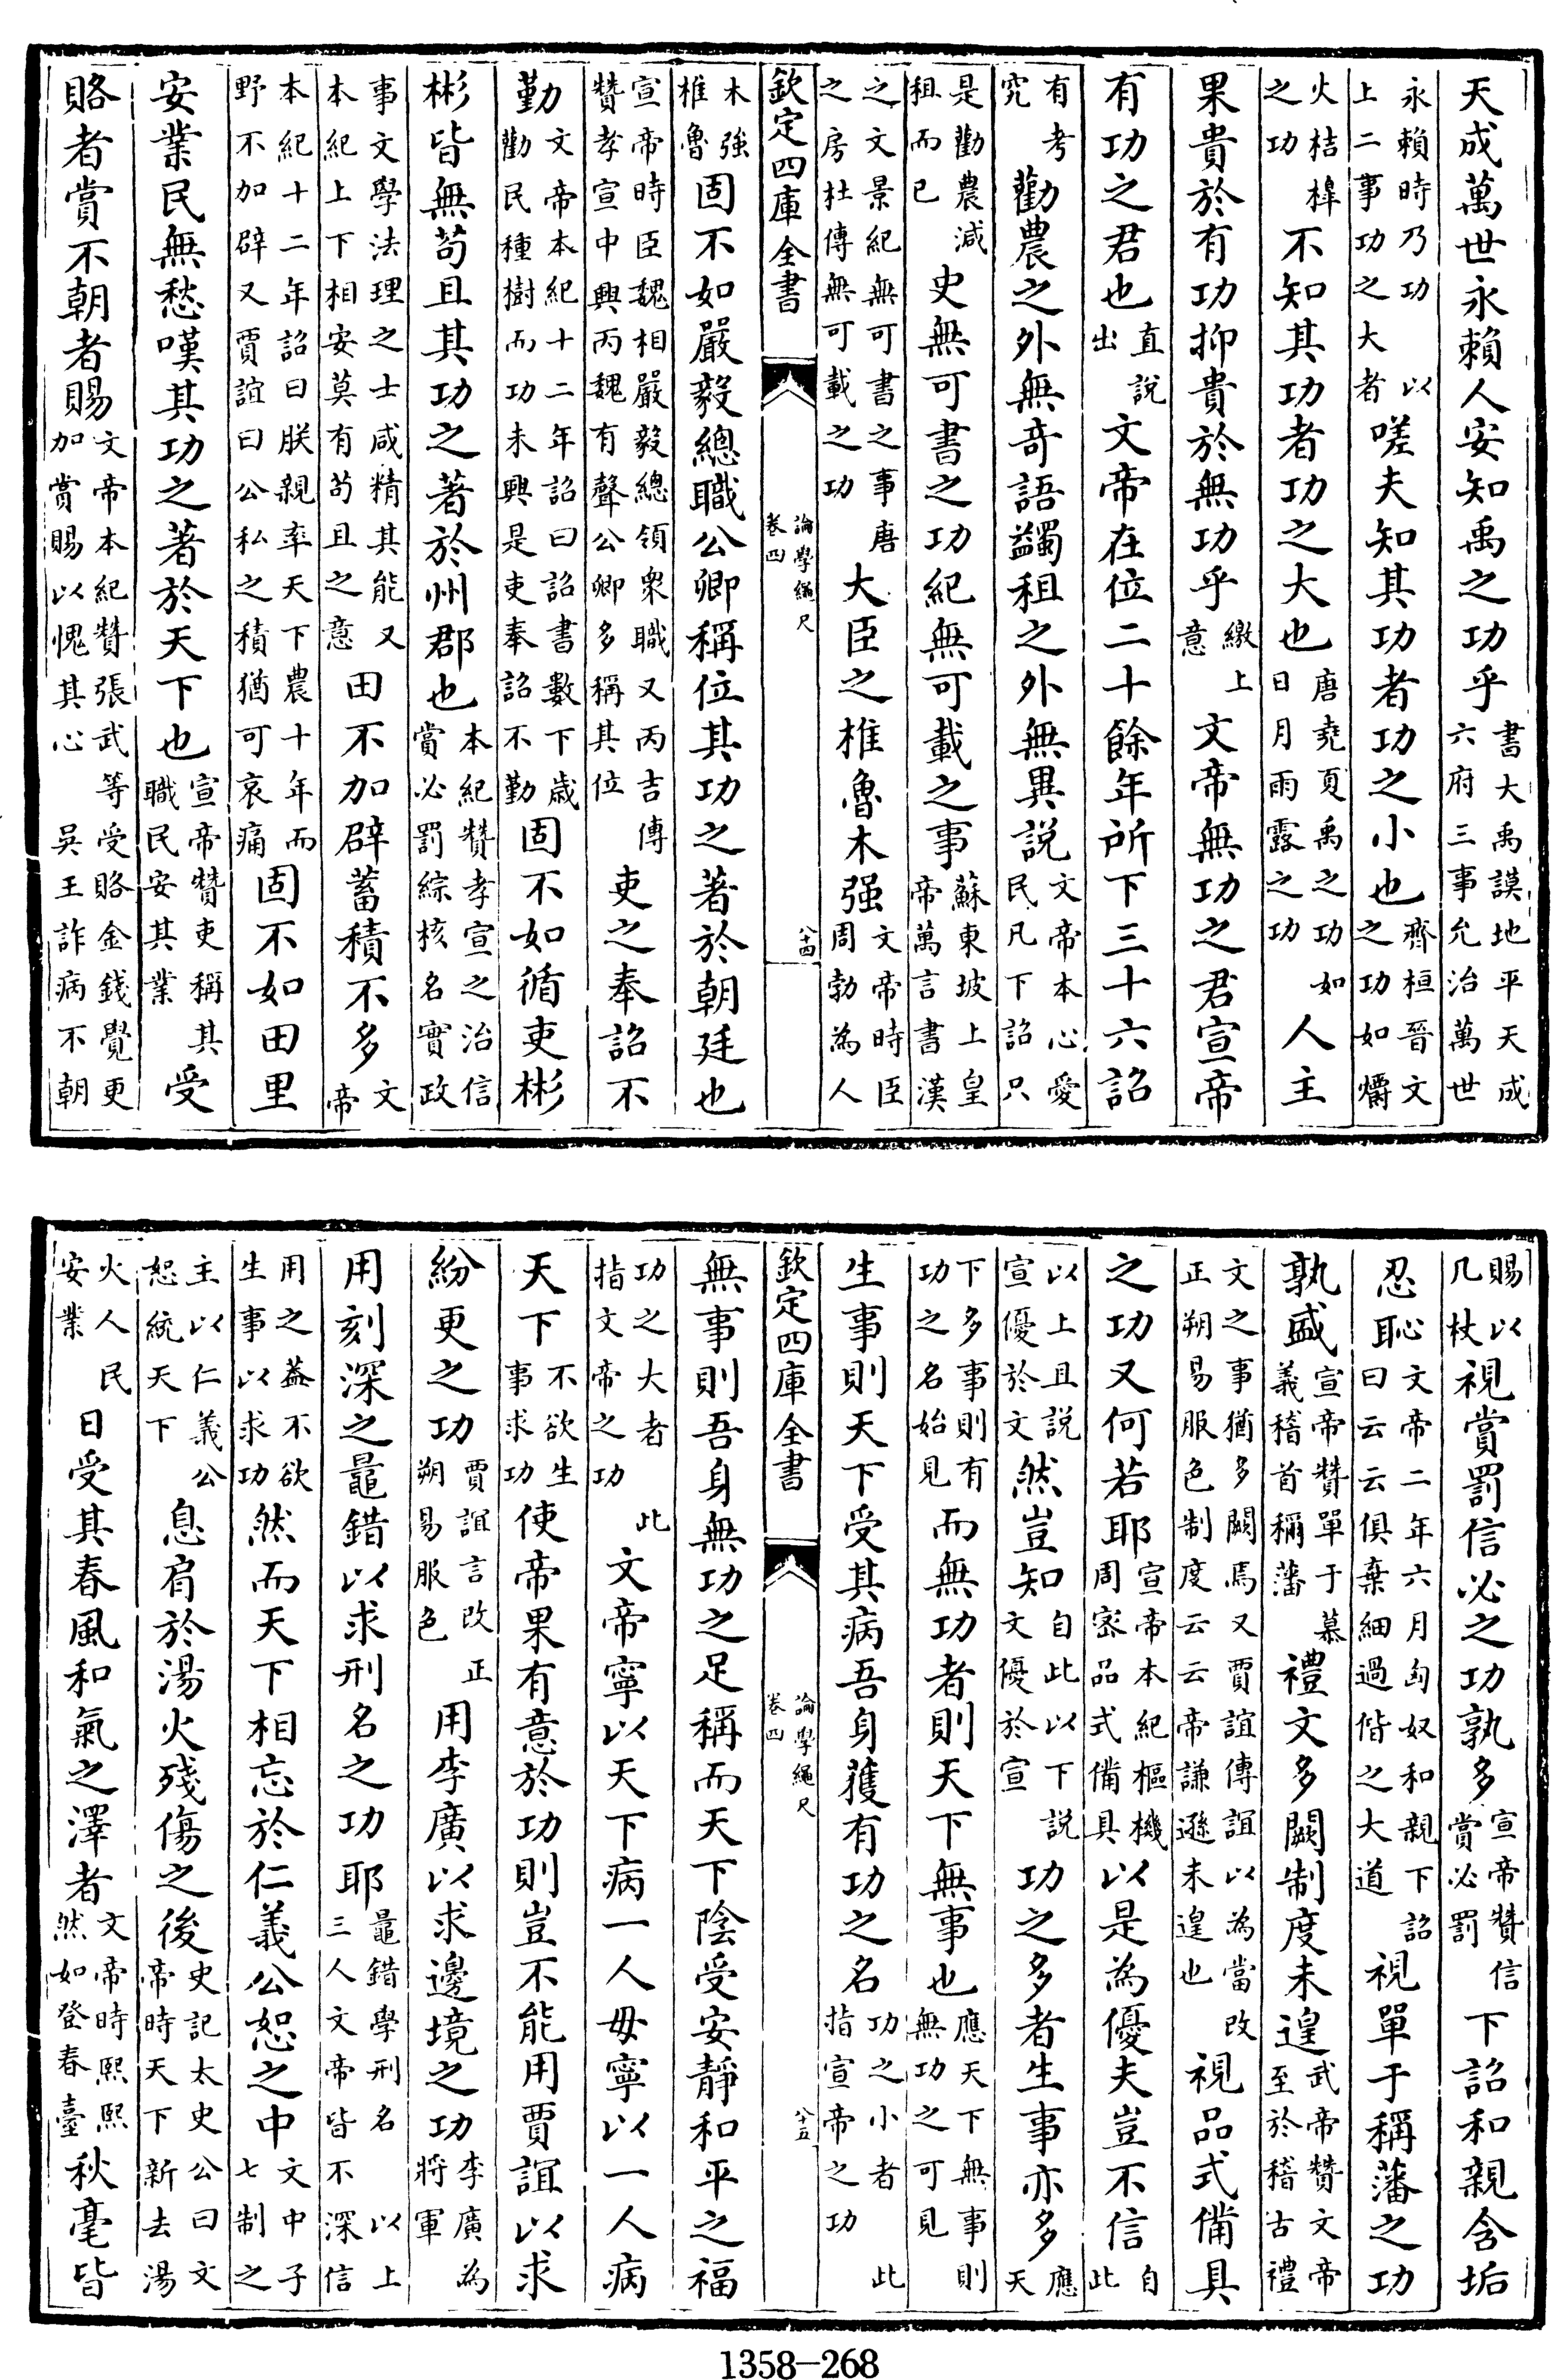 天成萬世永賴人安知禹之功乎書大禹謨地平天成六府三事允治萬世
永賴時乃功以上二事功之大者嗟夫知其功者功之小也齊桓晉文之功如爝
火桔橰之功不知其功者功之大也唐堯夏禹之功如日月雨露之功人主
果貴於有功抑貴於無功乎繳上意文帝無功之君宣帝
有功之君也直說出文帝在位二十餘年所下三十六詔
有考究勸農之外無奇語蠲租之外無異説文帝本心愛民凡下詔只
是勸農減租而已史無可書之功紀無可載之事蘇東坡上皇帝萬言書漢
之文景紀無可書之事唐之房杜傳無可載之功大臣之椎魯木强文帝時臣周勃為人
欽定四庫全書 論學繩尺 卷四 八十四
木強椎魯固不如嚴毅總職公卿稱位其功之著於朝廷也
宣帝時臣魏相嚴毅總領衆職又丙吉傳贊孝宣中興丙魏有聲公卿多稱其位吏之奉詔不
勤文帝本紀十二年詔曰詔書數下歲勸民種樹而功未興是吏奉詔不勤固不如循吏彬
彬皆無苟且其功之著於州郡也本紀贊孝宣之治信賞必罰綜核名實政
事文學法理之士咸精其能又本紀上下相安莫有苟且之意田不加辟蓄積不多文帝
本紀十二年詔曰朕親率天下農十年而野不加辟又賈誼曰公私之積猶可哀痛固不如田里
安業民無愁嘆其功之著於天下也宣帝贊吏稱其職民安其業受
賂者賞不朝者賜文帝本紀贊張武等受賂金錢覺更加賞賜以愧其心吳王詐病不朝
賜以几杖視賞罰信必之功孰多宣帝贊信賞必罰下詔和親含垢
忍恥文帝二年六月匈奴和親下詔曰云云俱棄細過偕之大道視單于稱藩之功
孰盛宣帝贊單于慕義稽首稱藩禮文多闕制度未遑武帝贊文帝至於稽古禮
文之事猶多闕焉又賈誼傳誼以為當改正朔易服色制度云云帝謙遜未遑也視品式備具
之功又何若耶宣帝本紀樞機周密品式備具以是為優夫豈不信自此
以上且說宣優於文然豈知自此以下說文優於宣功之多者生事亦多應天
下多事則有功之名始見而無功者則天下無事也應天下無事則無功之可見
生事則天下受其病吾身獲有功之名功之小者此指宣帝之功
欽定四庫全書 論學繩尺 卷四 八十五
無事則吾身無功之足稱而天下陰受安靜和平之福
功之大者此指文帝之功文帝寧以天下病一人毋寧以一人病
天下不欲生事求功使帝果有意於功則豈不能用賈誼以求
紛更之功賈誼言改正朔易服色用李廣以求邊境之功李廣為將軍
用刻深之鼂錯以求刑名之功耶鼂錯學刑名以上三人文帝皆不深信
用之蓋不欲生事以求功然而天下相忘於仁義公恕之中文中子七制之
主以仁義公恕統天下息肩於湯火殘傷之後史記太史公曰文帝時天下新去湯
火人民安業日受其春風和氣之澤者文帝時熙熙然如登春臺秋毫皆
1358-268